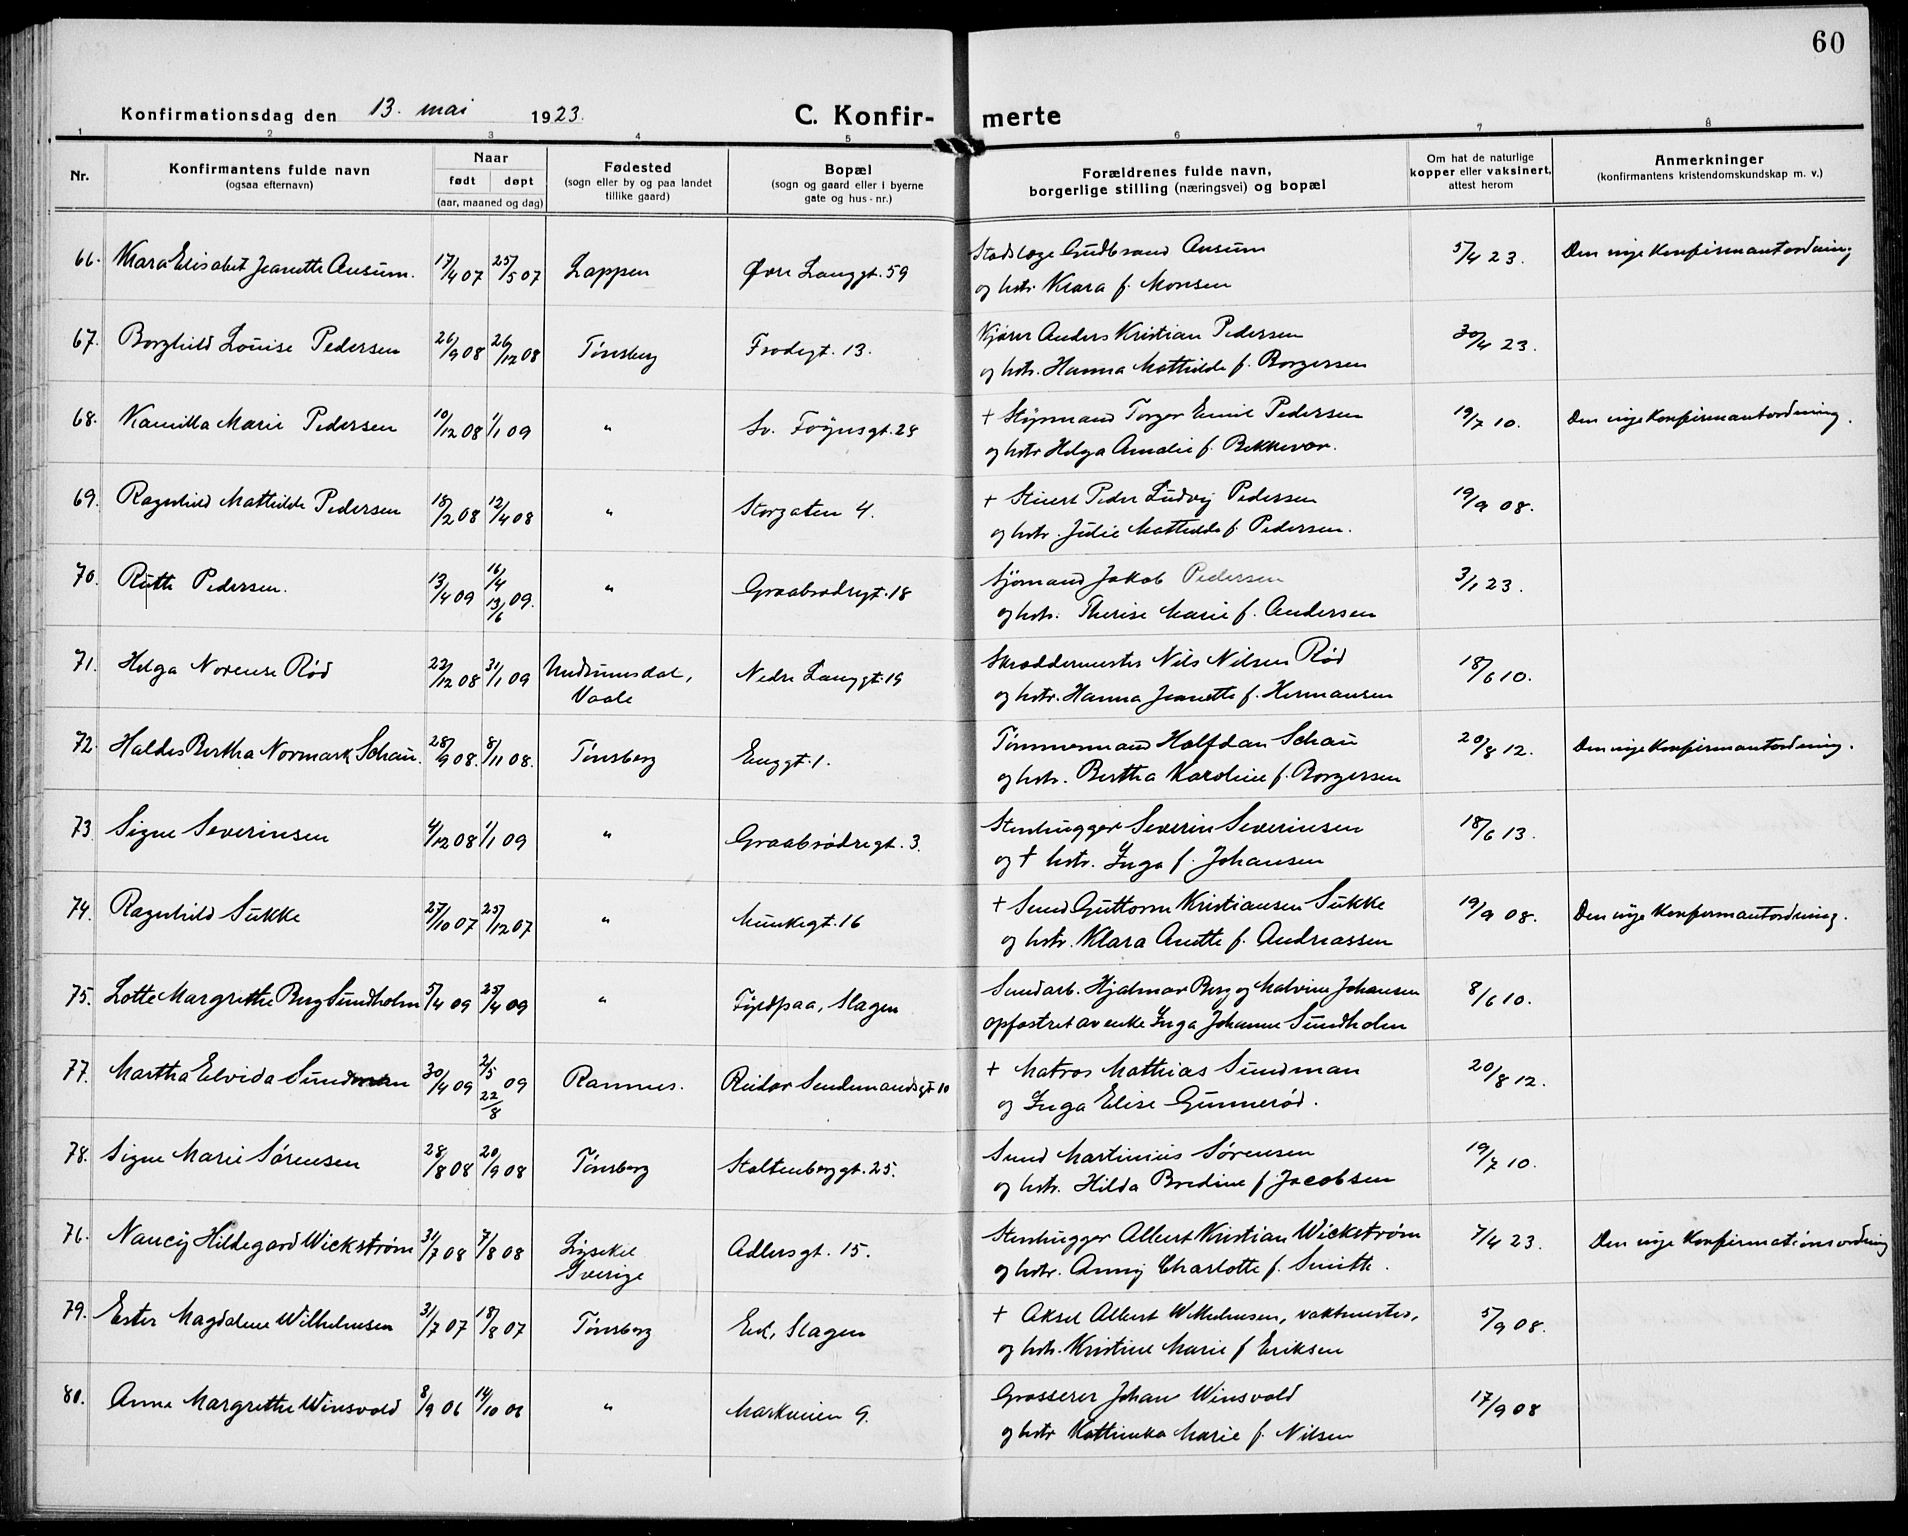 60
Konfirmationsdag den 13. mai 1923.
C. Konfir- merte
1 2 3 4 5 6 7 8
Nr. | Konfirmantens fulde navn (ogsaa efternavn) | Naar født | døpt (aar, maaned og dag) | Fødested (sogn eller by og paa landet tillike gaard) | Bopæl (sogn og gaard eller i byerne gate og hus-nr.) | Forældrenes fulde navn, borgerlige stilling (næringsvei) og bopæl | Om hat de naturlige kopper eller vaksinert, attest herom | Anmerkninger (konfirmantens kristendomskundskap m. v.)
66. Klara Elisabet Jeanette Ausum. 17/4 07 25/5 07 Lappen Øvre Langgt. 59 Stadslæge Gudbrand Ausum 5/4 23. Den nye Konfirmantordning
og hstr. Klara f. Monsen
67. Borghild Louise Pedersen 26/9 08 26/12 08 Tønsberg Frodegt. 13. Kjører Anders Kristian Pedersen 30/4 23.
og hstr. Hanna Mathilde f. Borgersen
68. Kamilla Marie Pedersen 10/12 08 1/1 09 " Sv. Føynsgt. 28 + Styrmand Torger Emil Pedersen 19/7 10. Den nye Konfirmantordning.
og hstr Helga Amalie f. Bekkevar.
69. Ragnhild Mathilde Pedersen 18/2 08 12/4 08 " Storgaten 4. + Stuert Peder Ludvig Pedersen 19/9 08.
og hstr. Julie Mathilde f. Pedersen.
70. Ruth Pedersen. 13/4 09 16/4 13/6 09. " Graabrødregt. 18 Sjømand Jakob Pedersen 3/1 23.
og hstr. Therese Marie f. Andersen
71. Helga Norense Rød 22/12 08 31/1 09 Undrumsdal, Vaale Nedre Langgt. 19 Skræddermester Nils Nilsen Rød 18/6 10.
og hstr. Hanna Jeanette f. Hermansen
72. Haldis Bertha Normark Schau. 28/9 08. 8/11 08. Tønsberg Enggt. 1. Tømmermand Halfdan Schau 20/8 12. Den nye Konfirmantordning.
og hstr. Bertha Karoline f. Borgersen
73 Signe Severinsen 4/12 08 1/1 09 " Graabrødregt. 3. Stenhugger Severin Severinsen 18/6 13.
og + hstr. Inga f. Johansen
74. Ragnhild Sukke 27/10 07 25/12 07 " Munkegt. 16 + Smed Guttorm Kristiansen Sukke 19/9 08. Den nye Konfirmantordning.
og hstr. Klara Anette f. Andreassen
75. Lotte Margrethe Berg Sundholm 5/4 09 25/4 09 " Føydpaa, Slagen Smedarb. Hjalmar Berg og Malvine Johansen 8/6 10.
opfostret av enke Inga Johanne Sundholm
77. Martha Elvida Sundman 30/4 09 2/5 22/8 09 Ramnes. Reidar Sendemandsgt. 10 + Matros Mathias Sundman 20/8 12.
og Inga Elise Gunnerød.
78. Signe Marie Sørensen 28/8 08 20/9 08 Tønsberg Stoltenberggt. 25. Smed Martinius Sørensen 19/7 10.
og hstr. Hilda Bredine f. Jacobsen
76. Nancy Hildegard Wickstrøm 31/7 08 7/8 08 Lysekil Sverige Adlersgt. 15. Stenhugger Albert Kristian Wickstrøm 7/4 23. Den nye Konfirmationsordning
og hstr. Anny Charlotte f. Smith.
79. Ester Magdalene Wilhelmsen 31/7 07 18/8 07 Tønsberg Eik, Slagen + Aksel Albert Wilhelmsen, vaktmester, 5/9 08.
og hstr. Kristine Marie f Eriksen
80. Anna Margrethe Winsvold 8/9 06 14/10 06 " Markveien 9. Grosserer Johan Winsvold 17/9 08
og hstr Kathinka Marie f. Nilsen